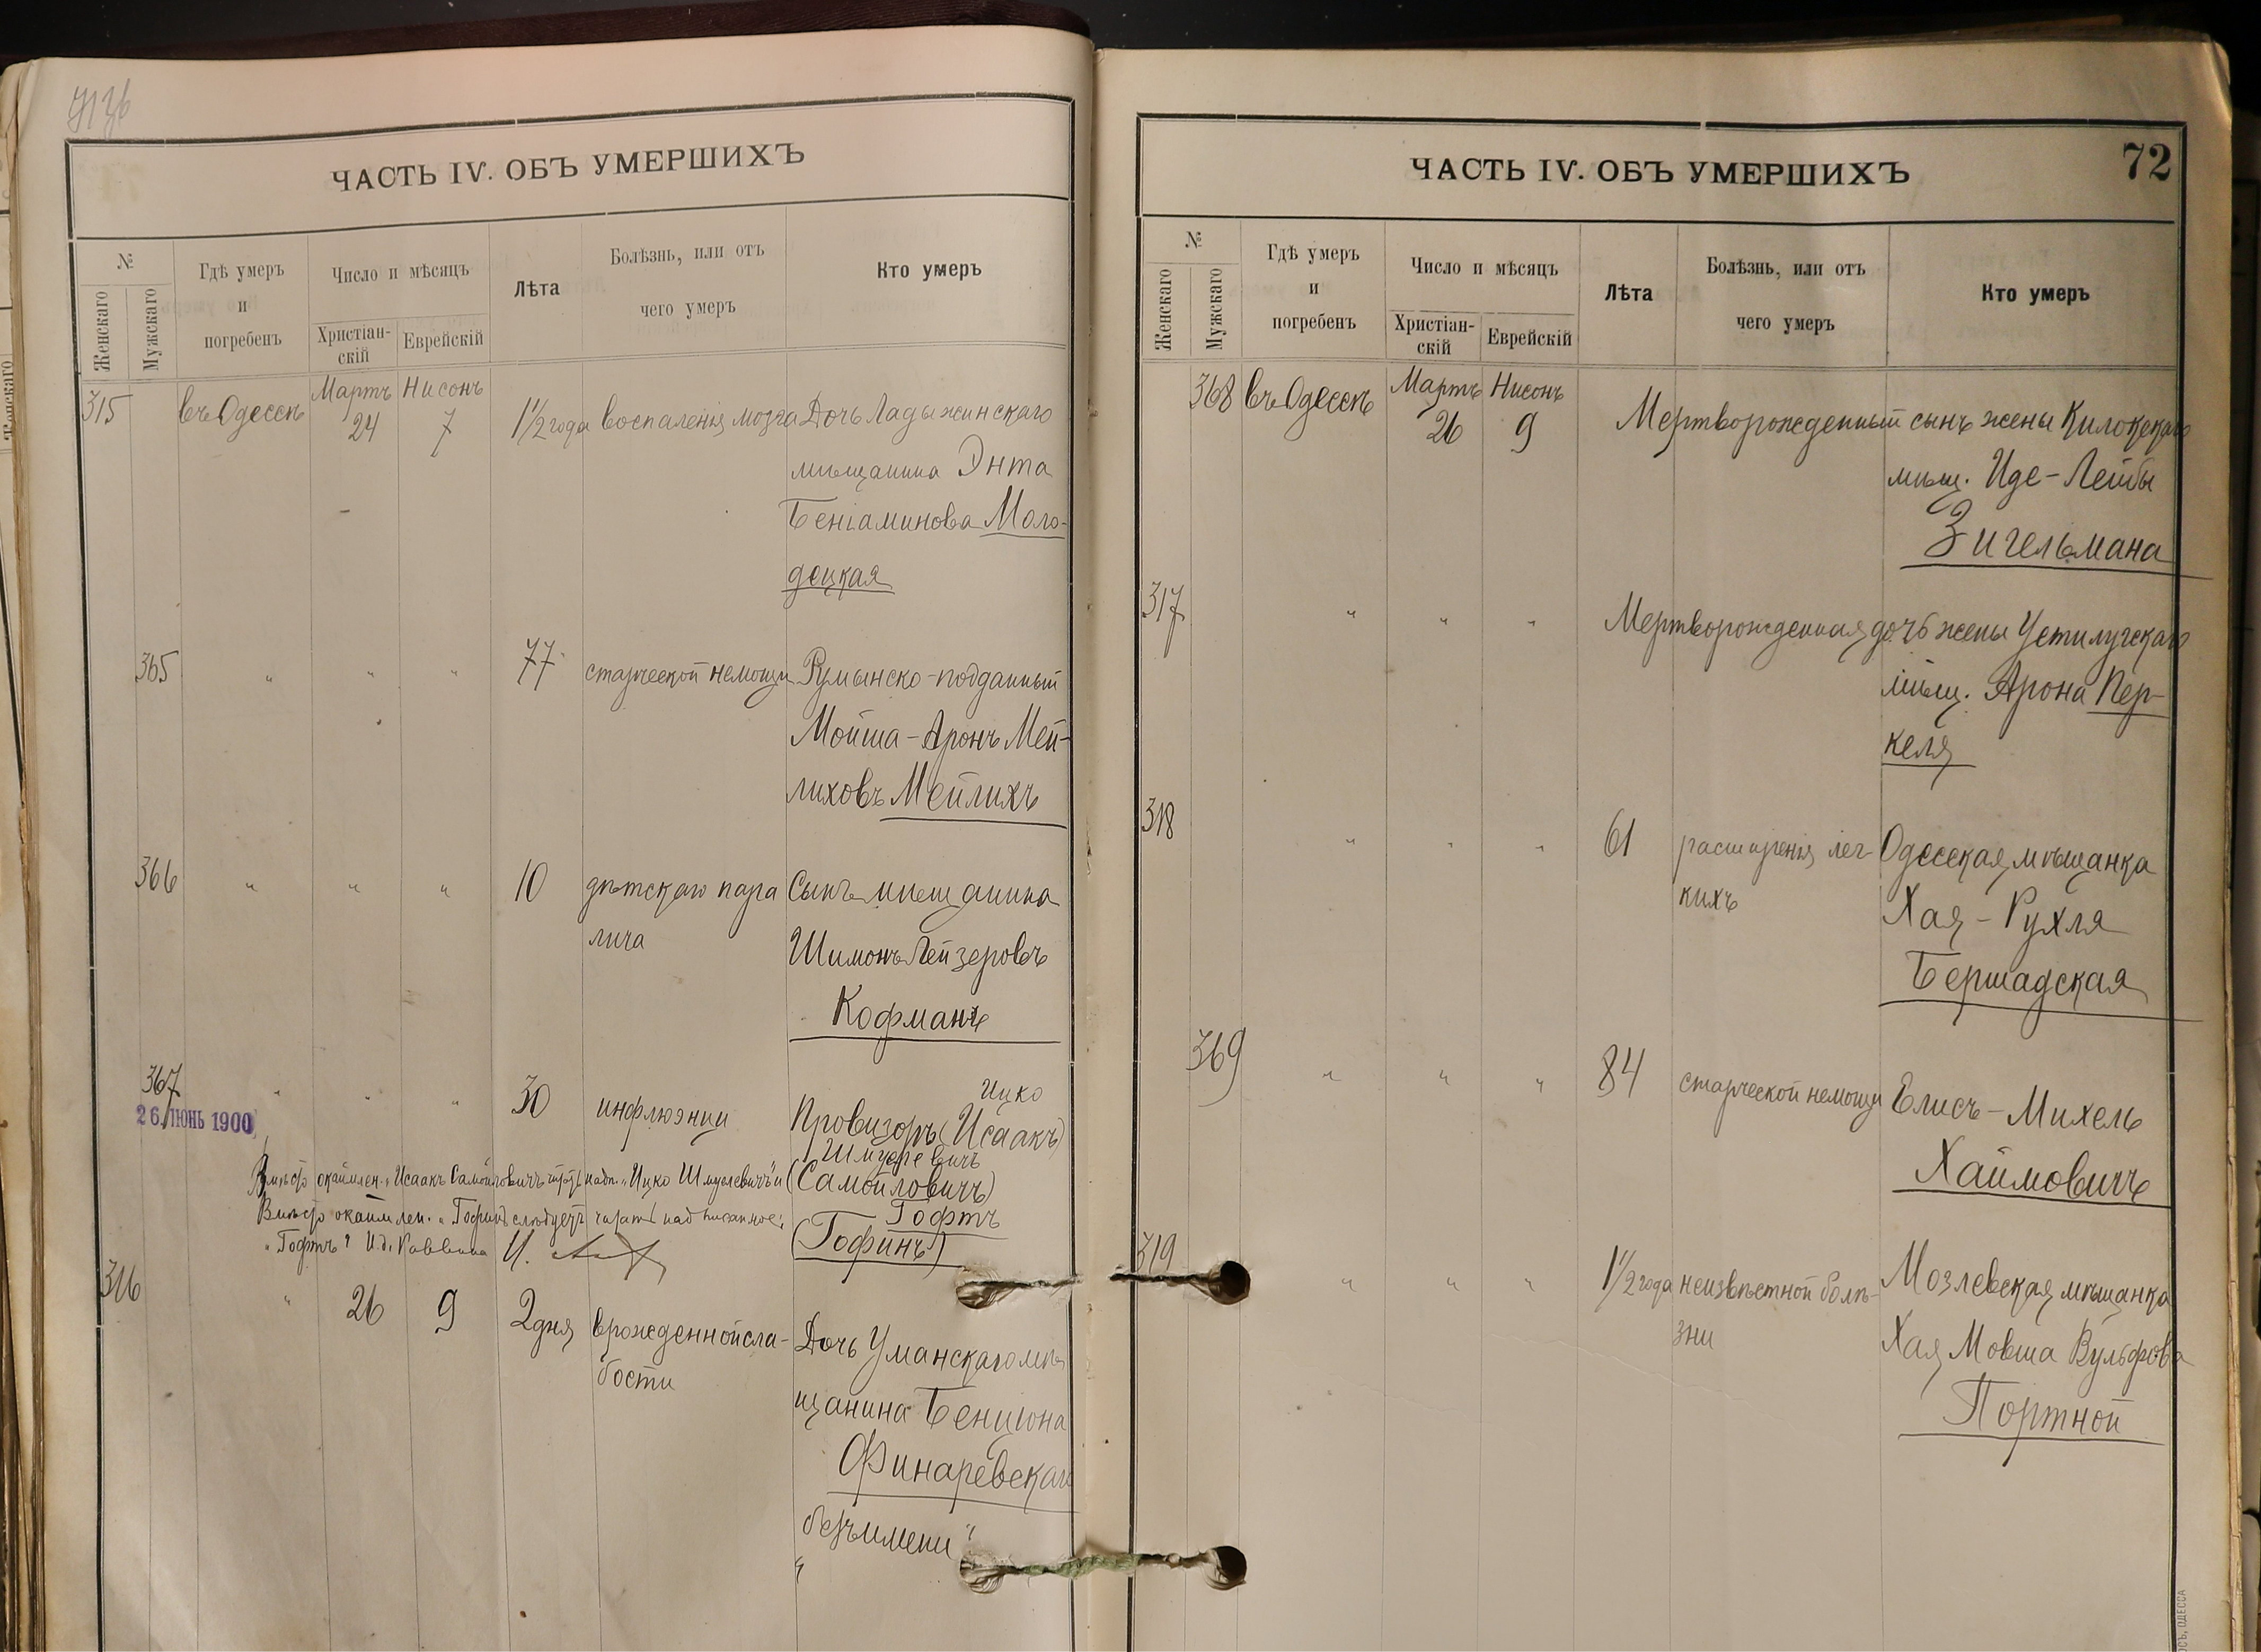 ЧАСТЬ IV. ОБЪ УМЕРШИХЪ
№
Женскаго
Мужскаго
Гдѣ умеръ
и
погребенъ
Число и мѣсяцъ
Христіан-
скій
Еврейскій
Лѣта
Болѣзнь, или отъ
чего умеръ
Кто умеръ
315 въ Одессѣ Мартъ 24 Нисонъ 7 1½ года воспаленія мозга Дочь Ладыжинскаго
мѣщанина Энта
Беніаминова Моло-
децкая
365 " " " 77 старческой немощи Румынско-подданный
Мойша-Аронъ Мей-
лиховъ Мейлихъ
366 " " " 10 дѣтскаго пара Сынъ мѣщанина
лича Шимонъ Лейзеровъ
Кофманъ
367 " " " 30 инфлюэнци Ицко
26 ІЮНЬ 1900
Провизоръ (Исаакъ)
Шмулевичъ
Вмѣсто окаймлен. "Исаакъ Самойловичъ" надп. "Ицко Шмулевичъ" и (Самойловичъ)
Вмѣсто окаймлен. "Гофинъ" слѣдуетъ читать надписанное: Гофтъ
"Гофтъ" И.д. Раввина И. (Гофинъ)
316 " 26 9 2 дня врожденной сла- Дочь Уманскаго мѣ
бости щанина Бенціона
Финаревскаго
"безъ имени"
ЧАСТЬ IV. ОБЪ УМЕРШИХЪ
72
№
Женскаго
Мужскаго
Гдѣ умеръ
и
погребенъ
Число и мѣсяцъ
Христіан-
скій
Еврейскій
Лѣта
Болѣзнь, или отъ
чего умеръ
Кто умеръ
368 въ Одессѣ Мартъ 26 Нисонъ 9 Мертворожденный сынъ жены
мѣщ. Иде-Лейбы
Зигельмана
317 " " " Мертворожденная дочь жены Устилугскаго
мѣщ. Арона Пер-
келя
318 " " " 61 расширенія лег- Одесская мѣщанка
кихъ Хая-Рухля
Бершадская
369 " " " 84 старческой немощи Елисъ-Михель
Хаймовичъ
319 " " " 1½ года неизвѣстной болѣ- Мозлевская мѣщанка
зни Хая Мовша Вульфова
Портной